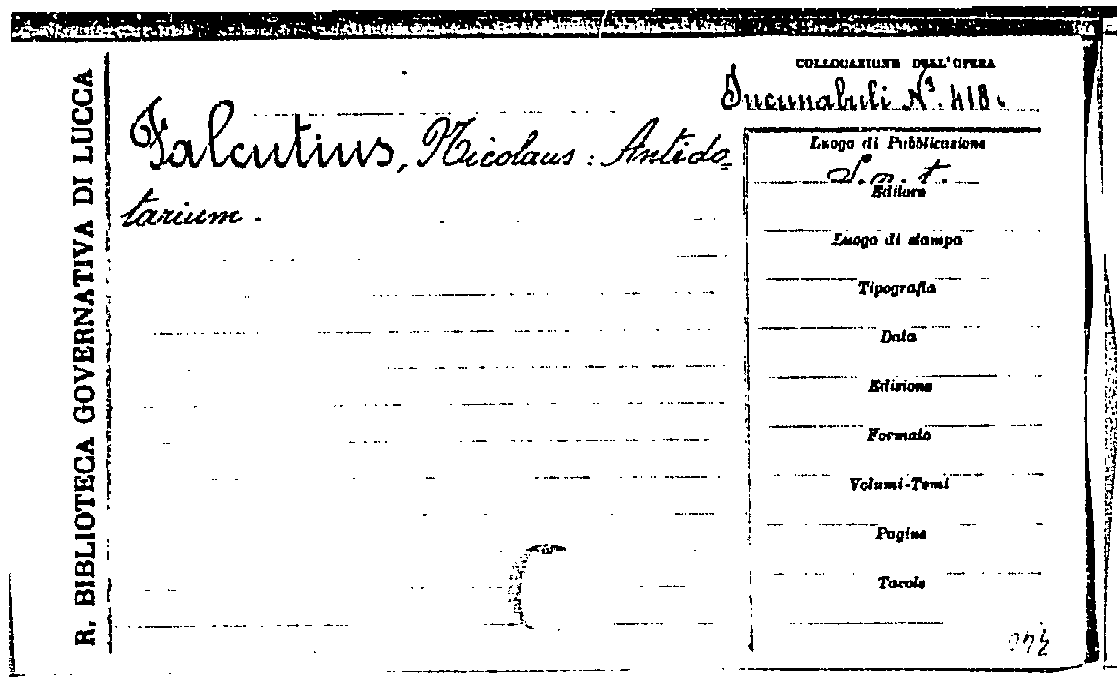 R. BIBLIOTECA GOVERNATIVA DI LUCCA
COLLOCAZIONE DELL'OPERA
Incunabuli N.° 418.
Falcutius, Nicolaus: Antido=
tarium.
Luogo di Pubblicazione
S. n. t.
Editore
Luogo di stampa
Tipografia
Data
Edizione
Formato
Volumi-Tomi
Pagine
Tavole